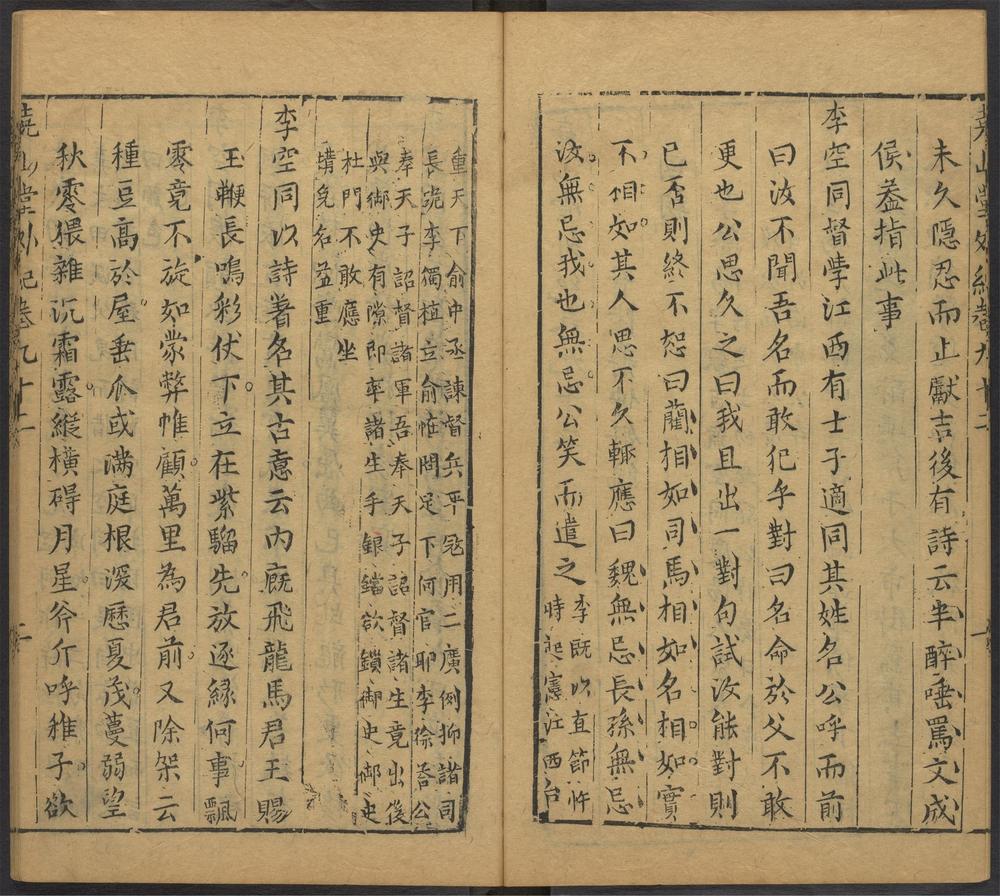 堯山堂外紀卷九十二
未久隱忍而止獻吉後有詩云半醉唾罵文成
侯葢指此事
李空同督學江西有士子適同其姓名公呼而前
曰汝不聞吾名而敢犯乎對曰名命於父不敢
更也公思久之曰我且出一對句試汝能對則
已否則終不恕曰藺相如司馬相如名相如實
不相如其人思不久輙應曰魏無忌長孫無忌
汝無忌我也無忌公笑而遣之李既以直節忤
時起憲江西台
重天下俞中丞諫督兵平㓂用二廣例抑諸司
長跪李獨植立俞恠問足下何官耶李徐荅公
奉天子詔督諸軍吾奉天子詔督諸生竟出後
與御史有隙即率諸生手鋃鐺欲鎖御史御史
杜門不敢應坐
搆免名益重
李空同以詩著名其古意云內廐飛龍馬君王賜
玉鞭長鳴彩伏下立在紫騮先放逐緣何事飄
零竟不旋如蒙弊帷顧萬里為君前又除架云
種豆高於屋垂瓜或滿庭根深歷夏茂蔓弱望
秋零猥雜沉霜露縱橫碍月星斧斤呼稚子欲
堯山堂外紀卷九十二